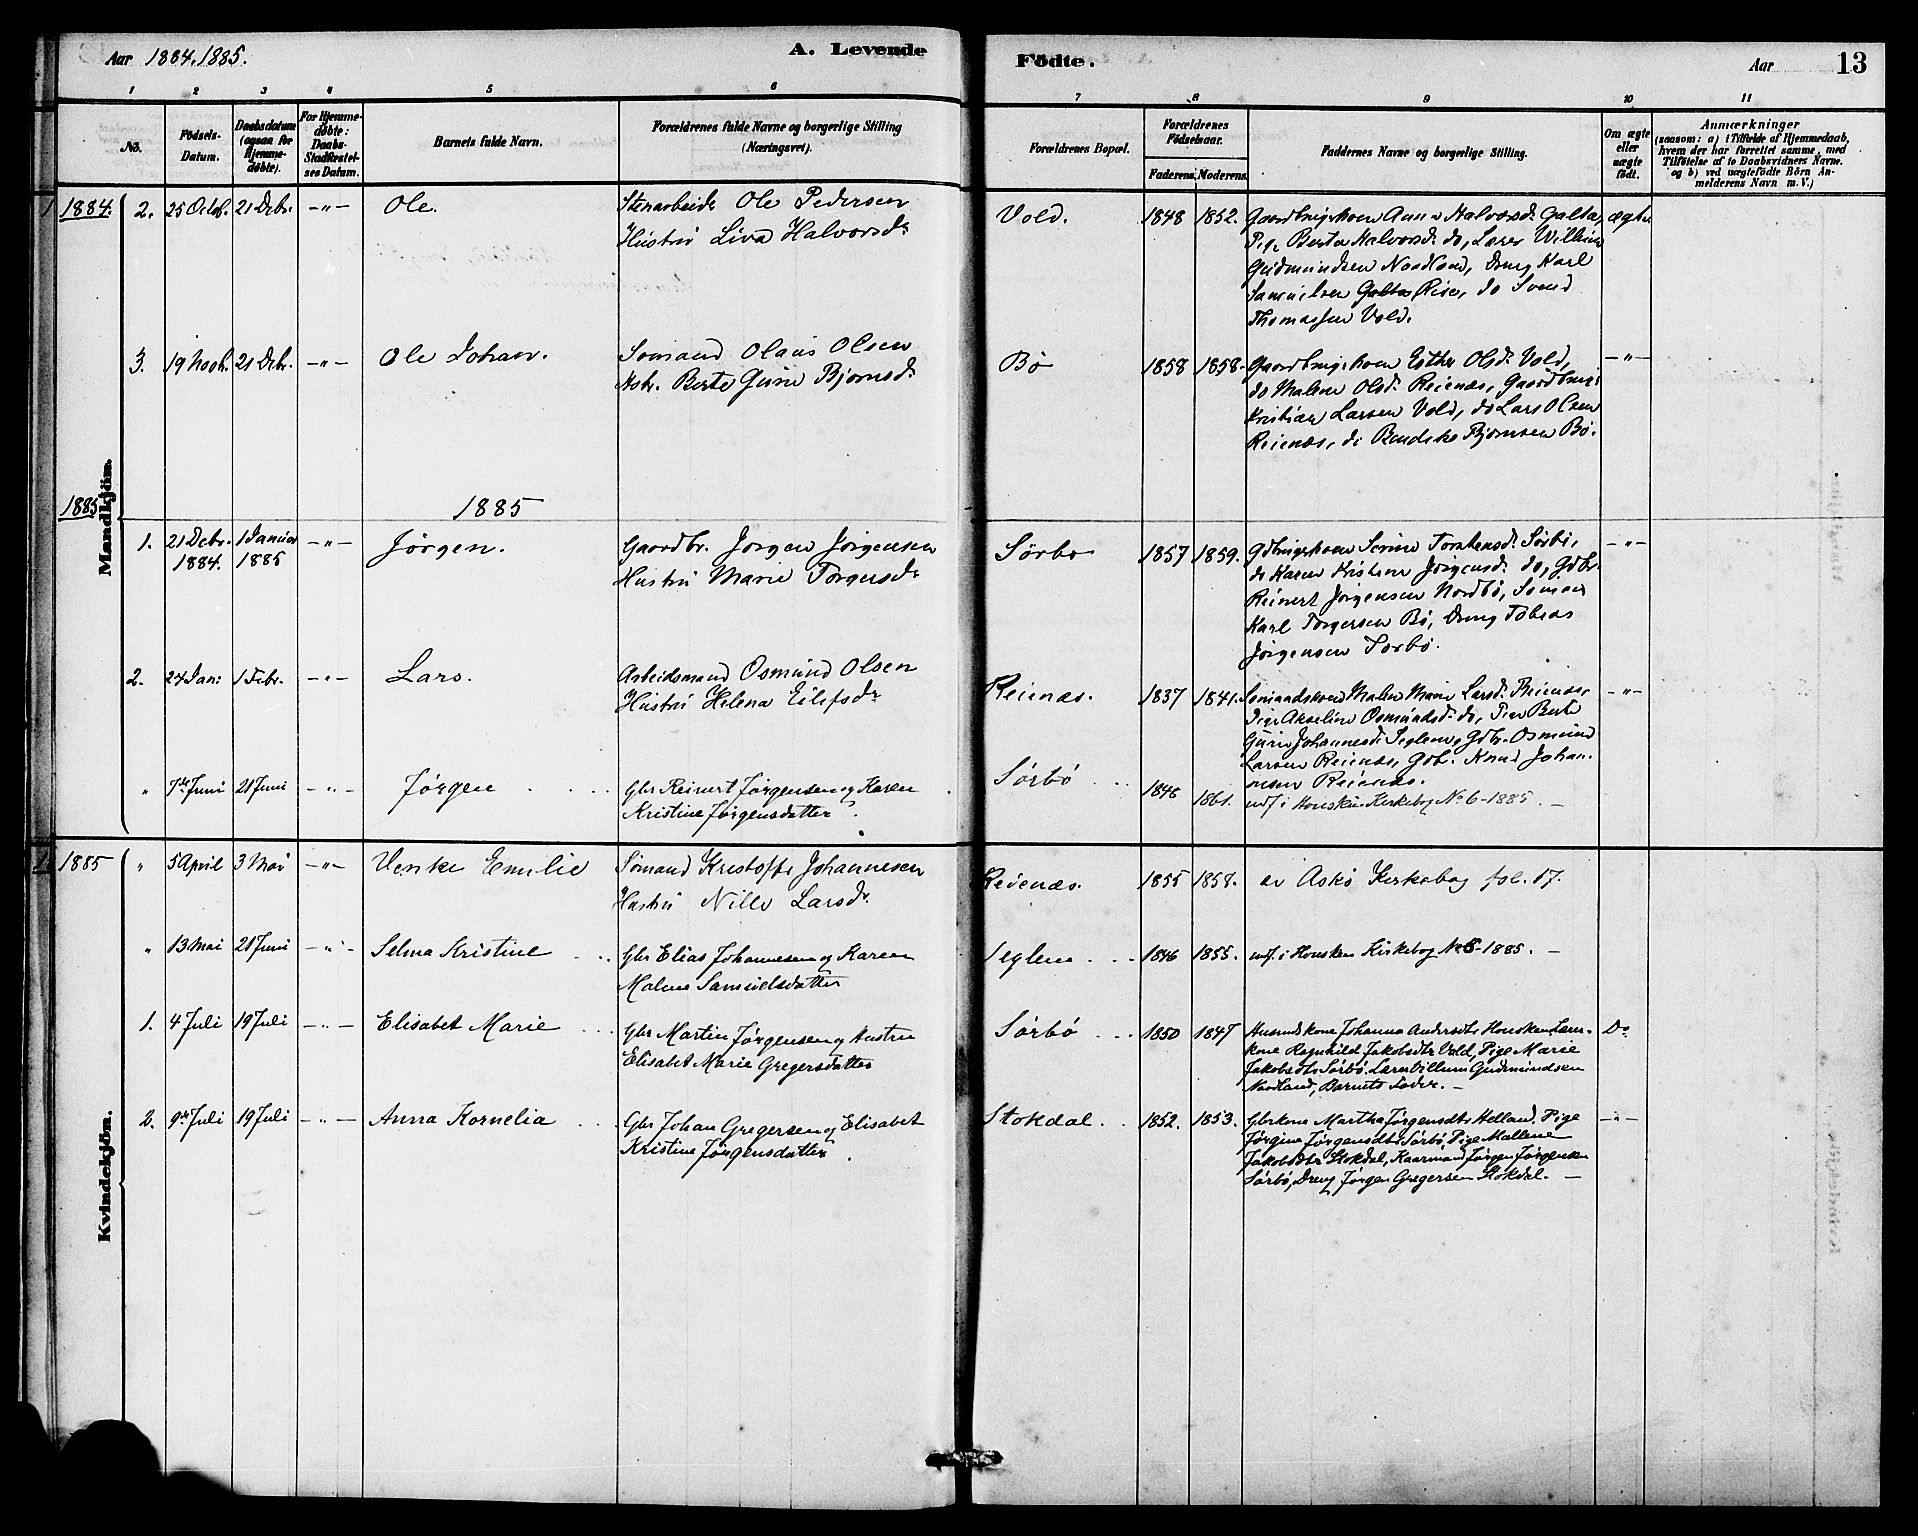 Aar 1884, 1885.
A. Levende
Födte.
Aar
13
1 2 3 4 5 6 7 8 9 10 11
No.
Födsels-Datum.
Daabsdatum (ogsaa for Hjemme-döbte).
For Hjemme-döbte: Daabs-Stadfæstel-ses Datum.
Barnets fulde Navn.
Forældrenes fulde Navne og borgerlige Stilling (Næringsvei).
Forældrenes Bopæl.
Forældrenes Födselsaar.
Faderens. Moderens.
Faddernes Navne og borgerlige Stilling.
Om ægte eller uægte födt.
Anmærkninger
(saasom: a) i Tilfælde af Hjemmedaab,
hvem der har forrettet samme, med
Tilföielse af to Daabsvidners Navne.
og b) ved uægtefödte Börn An-
melderens Navn m. V.)
Mandkjön.
1884. 2. 25 Octob. 21 Debr. -"- Ole.
Stenarbeider Ole Pedersen
Hustrü Liva Halvorsdr
Vold. 1848 1852.
Gaardbrugrkonen Anna Halvorsd. Galta,
Pige Berta Halvorsd. do, Lærer Willum
Gudmundsen Nordland, Dreng Karl
Samuelsen Galta Rise, do Svend
Thomassen Vold.
ægte
3. 19 Novb. 21 Debr. -"- Ole Johan.
Sømand Olaus Olsen
Hstr. Berte Gurine Bjørnsdr
Bø 1858 1858.
Gaardbrugrkonen Esther Olsd. Vold,
do Malene Olsd. Reienæs, Gaardbruger
Kristian Larsen Vold, do Lars Olsen
Reienæs, do Bendike Bjørnsen Bø.
-"-
1885
1885
1. 21 Debr. 1884. 1 Januar 1885 -"- Jørgen.
Gaardbr. Jørgen Jørgensen
Hustrü Marie Torgersdr
Sørbø 1857 1859.
Gdbrugerkonen Serine Torstensd. Sørbø,
do Karen Kristine Jørgensd. do, Gdbr.
Reinert Jørgensen Nordbø, Sømand
Karl Torgersen Bø, Dreng Tobias
Jørgensen Sørbø.
-"-
2. 24 Jan: 1 Febr. -"- Lars.
Arbeidsmand Osmund Olsen
Hustrü Helena Eilefsdr
Reienæs. 1837 1841.
Sømandskonen Malene Marie Larsd. Reienæs,
Pige Akseline Osmundsd. do, Pige Berte
Gurine Johannesd. Seglem, Gdbr. Osmund
Larsen Reienæs, Gdb. Knud Johan-
nesen Reienæs.
-"-
" 7de Juni 21 Juni -"- Jørgen
Gbr Reinert Jørgensen og Karen
Kristine Jørgensdatter.
Sørbø 1848 1861.
indf. i Hausken Kirkebog No 6-1885. -
Kvindekjön.
1885 " 5 April 3 Mai -"- Venke Emilie
Sømand Kristoffer Johannesen
Hustrü Nille Larsdr.
Reienæs. 1855 1858.
av Askø Kirkebog fol. 17.
" 13 Mai 21 Juni -"- Selma Kristine
Gbr Elias Johannesen og Karen
Malene Samuelsdatter
Seglem 1846 1855.
indf. i Hausken Kirkebog No 5-1885. -
1. 4 Juli 19 Juli -"- Elisabet Marie
Gbr Martin Jørgensen og Hustru
Elisabet Marie Gregersdatter
Sørbø 1850 1847
Husmdskone Johanna Andersdtr Hausken, Lærer-
kone Ragnhild Jakobsdtr Vold, Pige Marie
Jakobsdtr Sørbø, Lærer Villum Gudmundsen
Nordland, Barnets Fader. -
Do
2. 9de Juli 19 Juli -"- Anna Kornelia
Gbr Johan Gregersen og Elisabet
Kristine Jørgensdatter.
Stokdal. 1852. 1853.
Gbrkone Martha Jørgensdtr Helland, Pige
Jørgine Jørgensdtr Sørbø, Pige Mallene
Jakobsdtr Stokdal, Kaarmand Jørgen Jørgensen
Sørbø, Dreng Jørgen Gregersen Stokdal. -
-"-